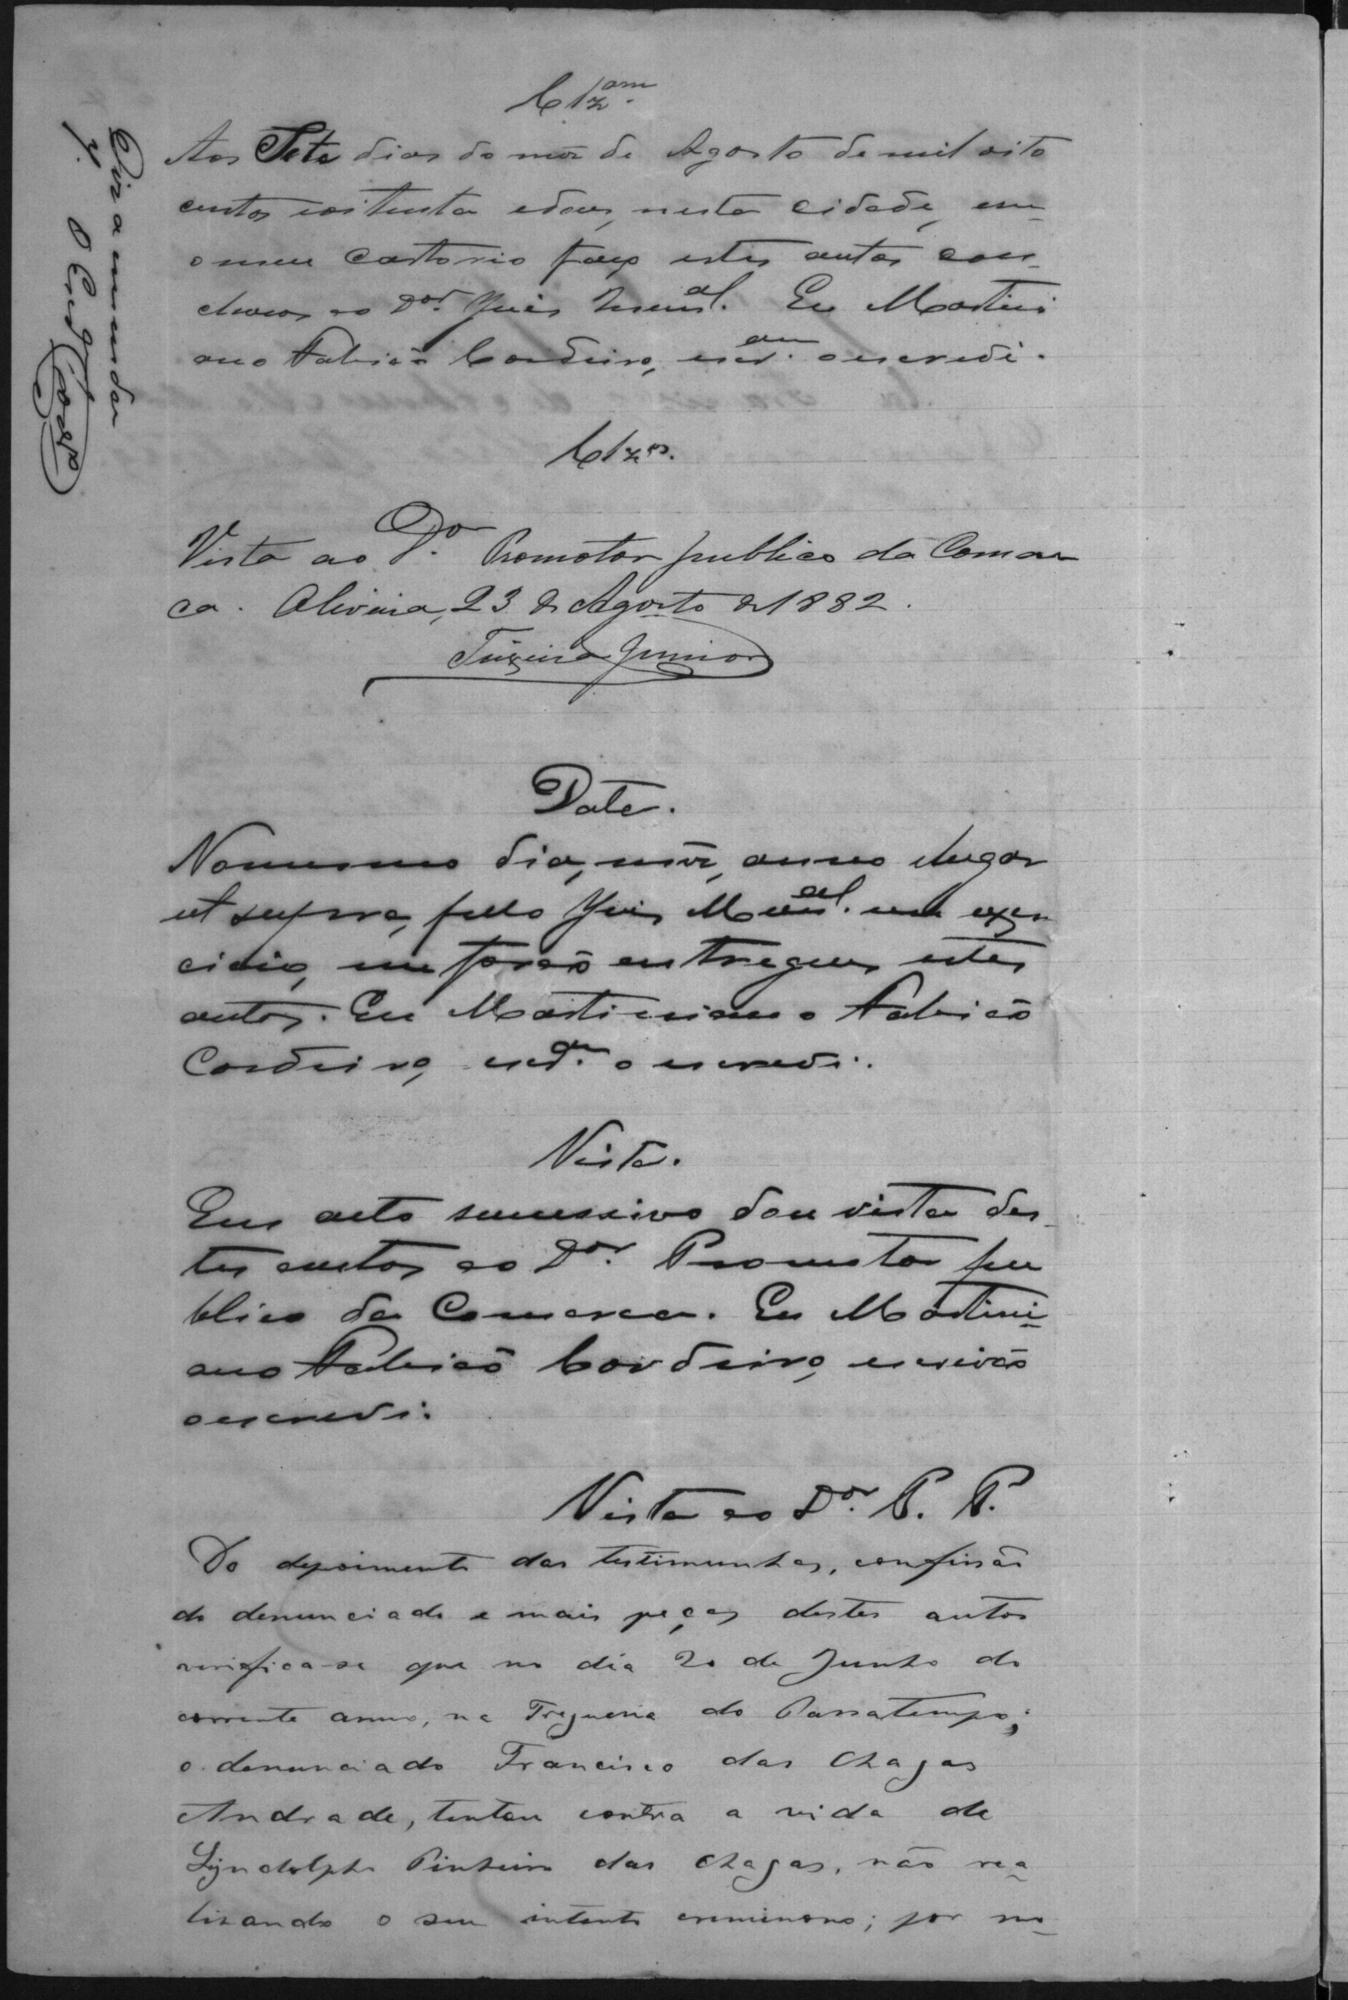 Clz.am
Aos Sete dias do mez de Agosto de mil oito
centos e oitenta e dous, nesta cidade, em
o meu cartorio faço estes autos con-
clusos ao Dor. Juiz Munal. Eu Martini
ano Fabricio Cordeiro, escr.am o escrevi.
Clzos.
Vista ao Dor. Promotor publico da Comar
ca. Oliveira, 23 de Agosto de 1882.
Teixeira Junior
Data.
No mesmo dia, mez, anno e lugar
ut supra, pelo Juiz Munal. em exer
cicio, me forão entregues estes
autos. Eu Martiniano Fabricio
Cordeiro, escram. o escrevi.
Vista.
Em acto sucessivo dou vista des
tes autos ao Dor. Promotor pu
blico da Comarca. Eu Martini-
ano Fabricio Cordeiro, escrivão
o escrevi.
Vista ao Dor. P. P.
Do depoimento das testimunhas, confissão
do denunciado e mais peças destes autos
verifica-se que no dia 20 de Junho do
corrente anno, na Freguesia do Passatempo;
o denunciado Francisco das Chagas
Andrade, tentou contra a vida de
Lyndolpho Pinheiro das Chagas, não rea-
lisando o seu intento creminoso; por mo-
Diz a emmenda
O Escram. Cordro